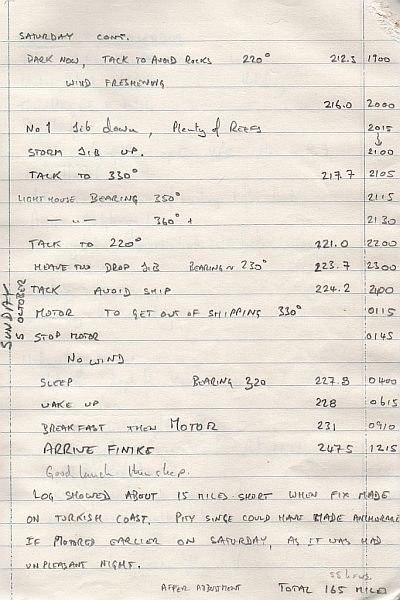 SATURDAY CONT.
DARK NOW, TACK TO AVOID ROCKS 220° 212.3 1900
WIND FRESHENING
216.0 2000
No 1 Jib down, Plenty of REEFS 2015
STORM JIB UP. 2100
TACK TO 330° 217.7 2105
LIGHTHOUSE BEARING 350° 2115
— " — 360° + 2130
TACK TO 220° 221.0 2200
HEAVE TOO DROP JIB BEARING N 230° 223.7 2300
SUNDAY 5 OCTOBER
TACK AVOID SHIP 224.2 2400
MOTOR TO GET OUT OF SHIPPING 330° 0115
STOP MOTOR 0145
NO WIND
SLEEP BEARING 320 227.8 0400
WAKE UP 228 0615
BREAKFAST THEN MOTOR 231 0910
ARRIVE FINIKE 247.5 1215
Good lunch then sleep.
LOG SHOWED ABOUT 15 MILES SHORT WHEN FIX MADE
ON TURKISH COAST. PITY SINCE COULD HAVE MADE ANCHORAGE
IF MOTORED EARLIER ON SATURDAY, AS IT WAS HAD
UNPLEASANT NIGHT.
55 hrs.
AFTER ADJUSTMENT TOTAL 165 MILES